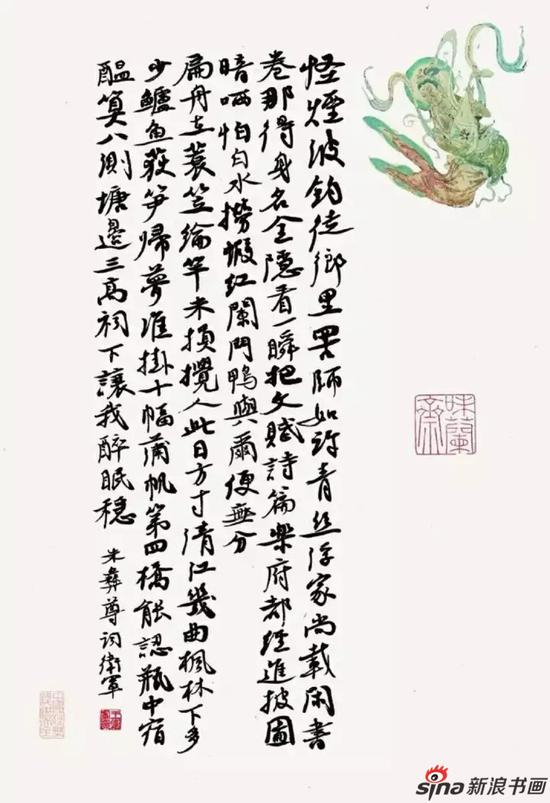 怪煙波釣徒鄉里罢師如許青丝浮家尚載闲書
卷那得身名全隱看一瞬把文赋詩篇樂府都經進披圖
暗哂怕白水撈蝦紅闌門鴨與爾便無分
扁舟立蓑笠綸竿未損攪人此日方寸清江幾曲楓林下多
少鱸魚荻笋歸夢准掛十幅蒲帆第四橋能認瓶中宿
醖算八測塘邊三高祠下讓我醉眠穩
朱彝尊词衛軍
味蘭齋
sina新浪书画